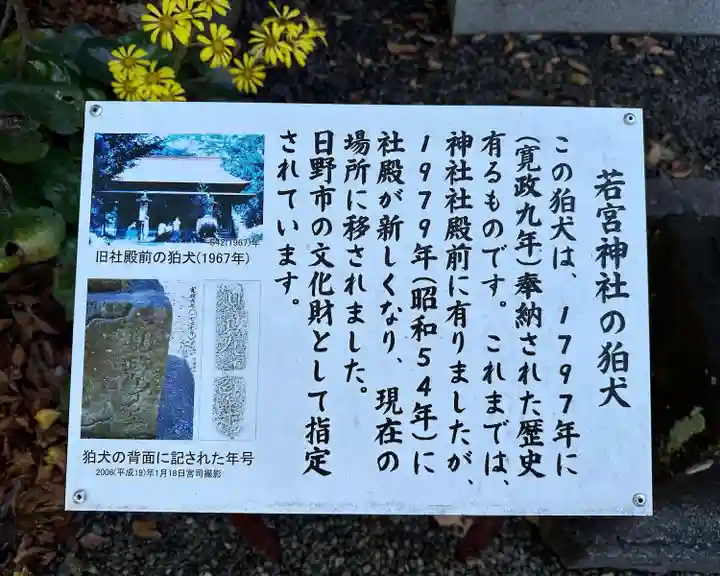 若宮神社の狛犬
この狛犬は、1797年に
(寛政九年)奉納された歴史
有るものです。これまでは、
神社社殿前に有りましたが、
1979年(昭和54年)に
社殿が新しくなり、現在の
場所に移されました。
日野市の文化財として指定
されています。
S42(1967)年
旧社殿前の狛犬(1967年)
狛犬の背面に記された年号
2006(平成19)年1月18日宮司撮影